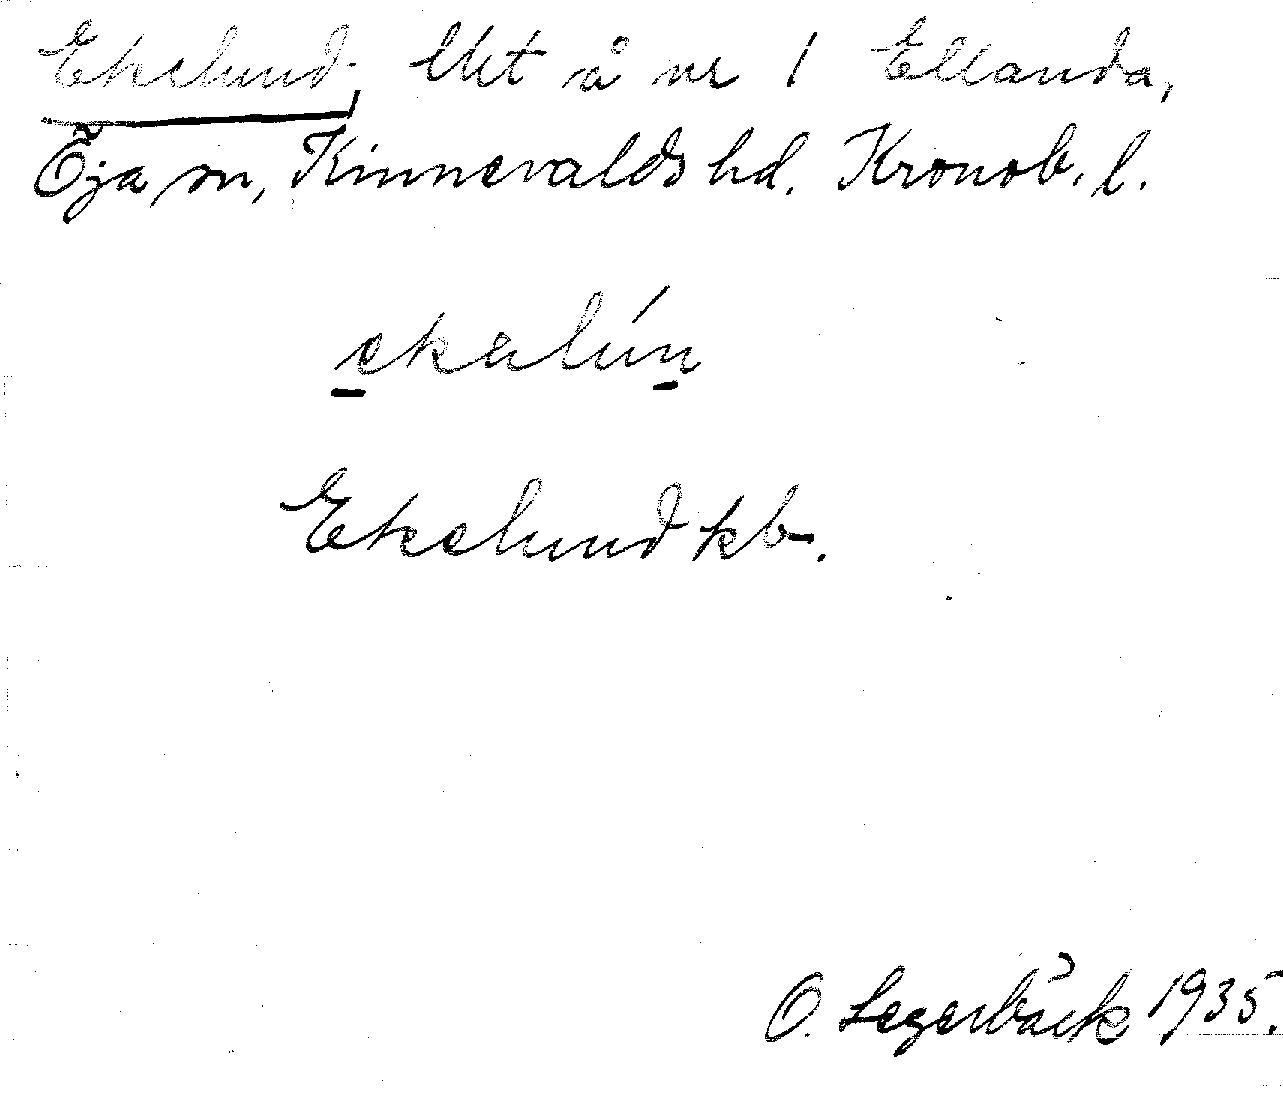 Ekelund, lht å nr 1 Ellanda,
Öja sn, Kinnevalds hd. Kronob. l.
ekalún
Ekelund kb.
O. Legerbäck 1935.